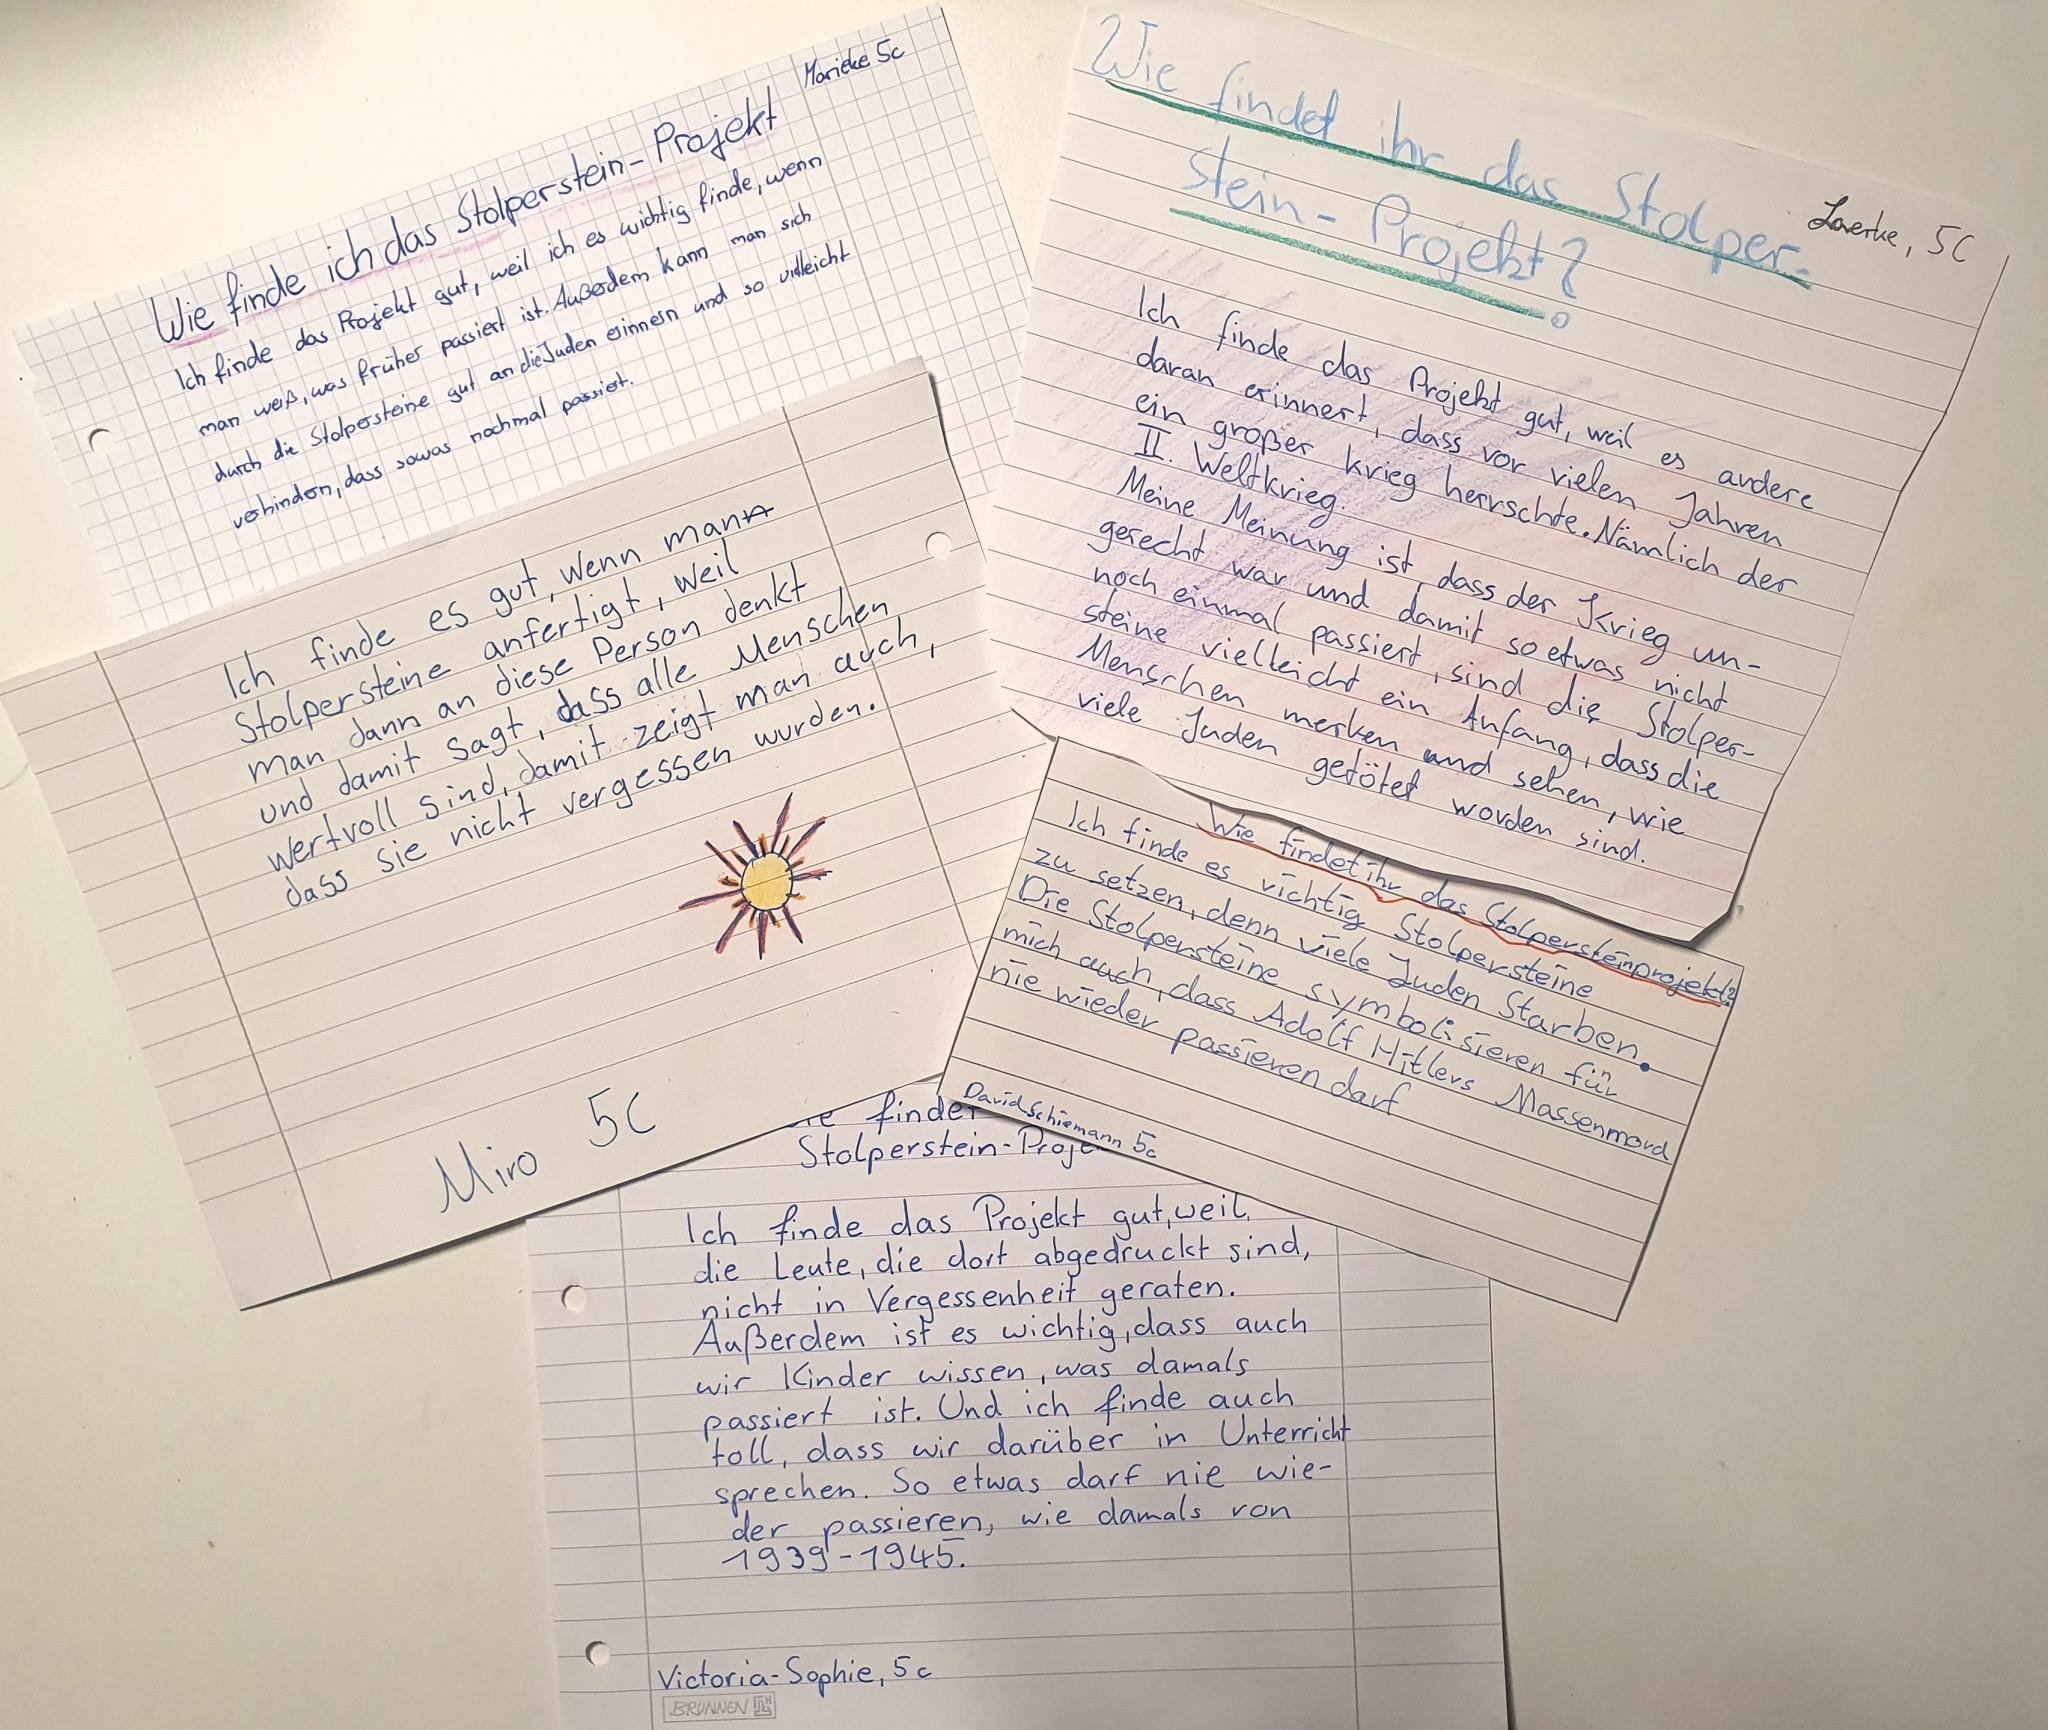 Marieke 5c
Wie finde ich das Stolperstein-Projekt
Ich finde das Projekt gut, weil ich es wichtig finde, wenn
man weiß, was früher passiert ist. Außerdem kann man sich
durch die Stolpersteine gut an die Juden erinnern und so vielleicht
verhindern, dass sowas nochmal passiert.
Ich finde es gut, wenn man
Stolpersteine anfertigt, weil
man dann an diese Person denkt
und damit sagt, dass alle Menschen
wertvoll sind, damit zeigt man auch,
dass sie nicht vergessen wurden.
Miro 5c
Wie findet ihr das Stolper-
stein-Projekt?
Laerke, 5C
Ich finde das Projekt gut, weil es andere
daran erinnert, dass vor vielen Jahren
ein großer Krieg herrschte. Nämlich der
II. Weltkrieg.
Meine Meinung ist, dass der Krieg un-
gerecht war und damit so etwas nicht
noch einmal passiert, sind die Stolper-
steine vielleicht ein Anfang, dass die
Menschen merken und sehen, wie
viele Juden getötet worden sind.
Wie findet ihr das Stolpersteinprojekt?
Ich finde es richtig Stolpersteine
zu setzen, denn viele Juden Starben.
Die Stolpersteine symbolisieren für
mich auch, dass Adolf Hitlers Massenmord
nie wieder passieren darf
David Schiemann 5c
finde
Stolperstein-Proje
Ich finde das Projekt gut, weil
die Leute, die dort abgedruckt sind,
nicht in Vergessenheit geraten.
Außerdem ist es wichtig, dass auch
wir Kinder wissen, was damals
passiert ist. Und ich finde auch
toll, dass wir darüber in Unterricht
sprechen. So etwas darf nie wie-
der passieren, wie damals von
1939-1945.
Victoria-Sophie, 5c
BRUNNEN